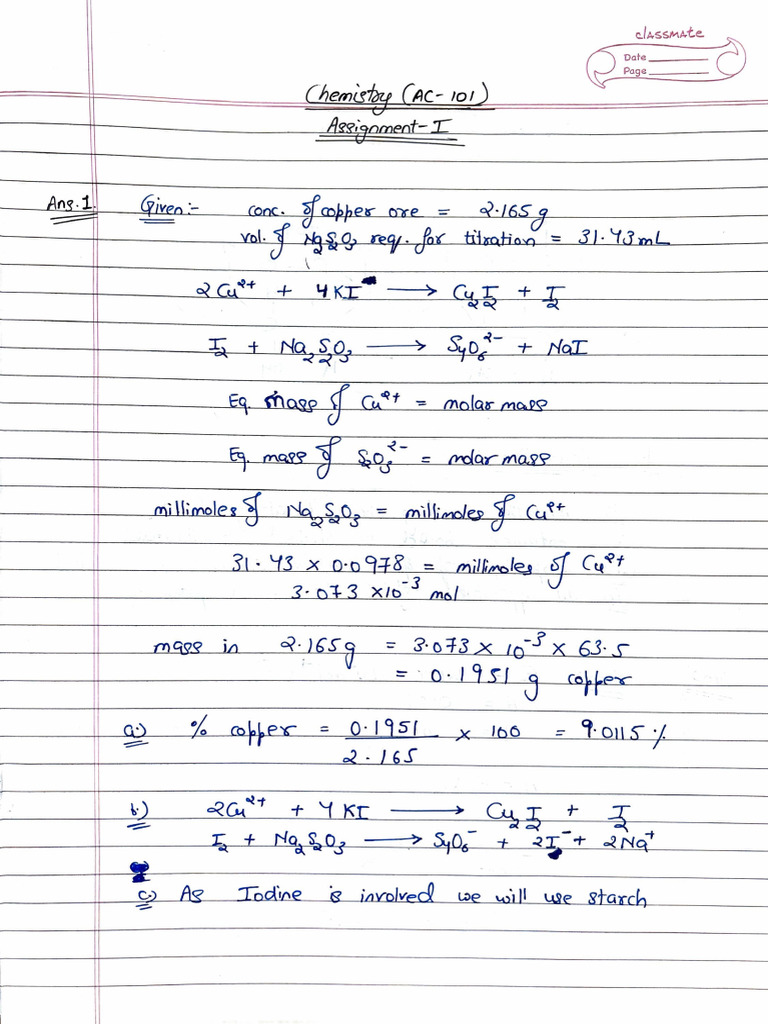 classmate
Date
Page
Chemistry (AC-101)
Assignment-I
Ans.1. Given:- conc. of copper ore = 2.165 g
vol. of Na2S2O3 req. for titration = 31.43 mL
2Cu²⁺ + 4KI → Cu2I2 + I2
I2 + Na2S2O3 → S4O6²⁻ + NaI
Eq. mass of Cu²⁺ = molar mass
Eq. mass of S2O3²⁻ = molar mass
millimoles of Na2S2O3 = millimoles of Cu²⁺
31.43 × 0.0978 = millimoles of Cu²⁺
3.073 × 10⁻³ mol
mass in 2.165g = 3.073 × 10⁻³ × 63.5
= 0.1951 g copper
a.) % copper = 0.1951 / 2.165 × 100 = 9.0115 %
b.) 2Cu²⁺ + 4KI → Cu2I2 + I2
I2 + Na2S2O3 → S4O6⁻ + 2I⁻ + 2Na⁺
c.) As Iodine is involved we will use starch